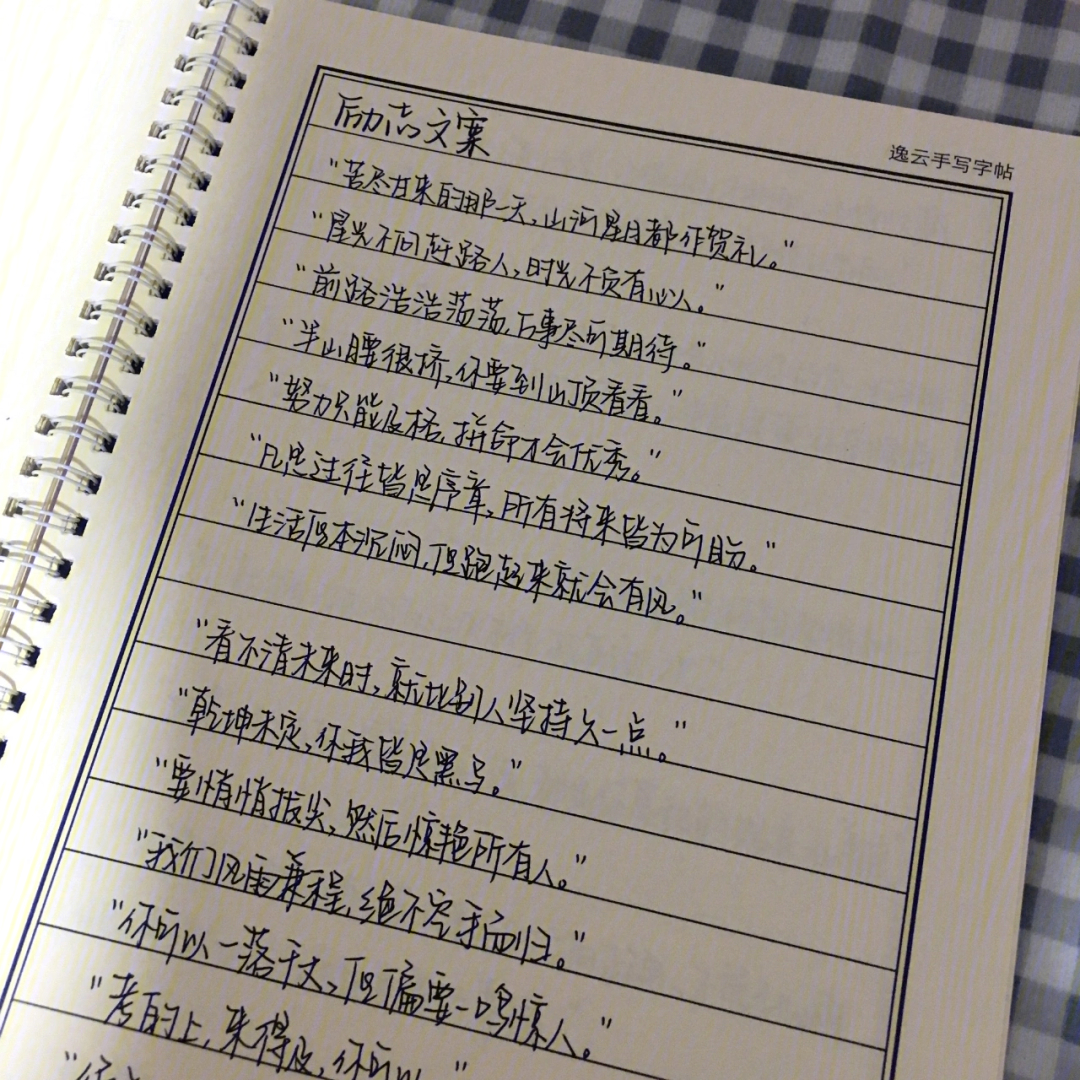 逸云手写字帖
励志文案
"苦尽甘来的那一天,山河星月都作贺礼。"
"星光不问赶路人,时光不负有心人。"
"前路浩浩荡荡,万事尽可期待。"
"半山腰很挤,你要到山顶看看。"
"努力只能及格,拼命才会优秀。"
"凡是过往皆是序章,所有将来皆为可盼。"
"生活原本沉闷,但跑起来就会有风。"
"看不清未来时,就比别人坚持久一点。"
"乾坤未定,你我皆是黑马。"
"要悄悄拔尖,然后惊艳所有人。"
"我们风雨兼程,绝不空手而归。"
"你可以一落千丈,但偏要一鸣惊人。"
"考的上,来得及,你可以。"
"你